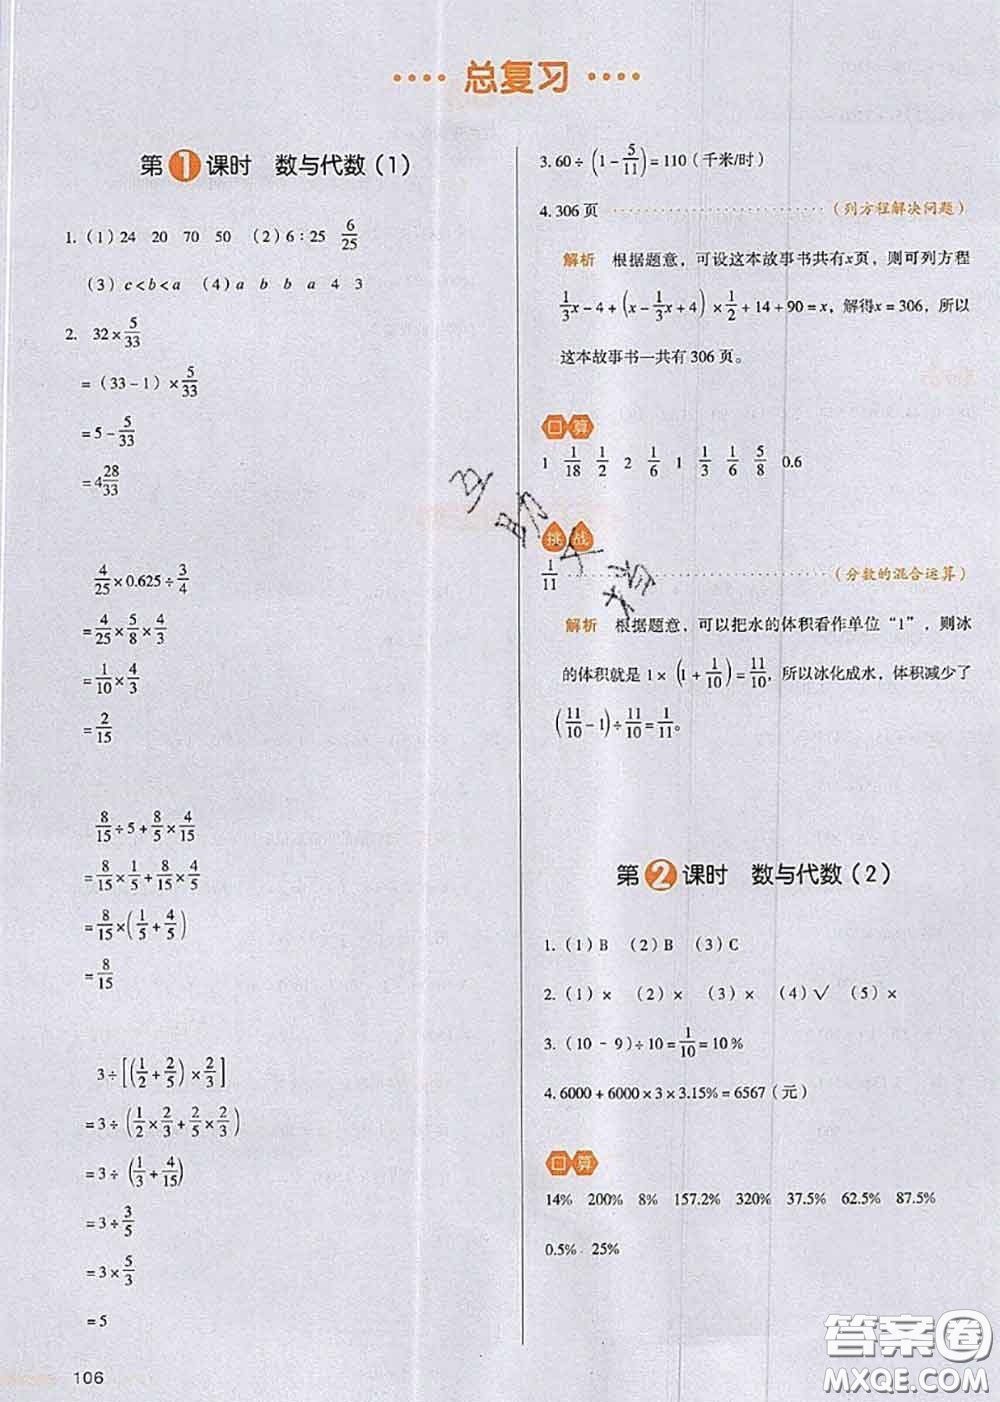 总复习
第1课时 数与代数(1)
1. (1)24 20 70 50 (2)6:25 6/25
(3) c<b<a (4)a b b a 4 3
2. 32×5/33
=(33-1)×5/33
=5-5/33
=4 28/33
4/25×0.625÷3/4
=4/25×5/8×4/3
=1/10×4/3
=2/15
8/15÷5+8/5×4/15
=8/15×1/5+8/15×4/5
=8/15×(1/5+4/5)
=8/15
3÷[(1/2+2/5)×2/3]
=3÷(1/2×2/3+2/5×2/3)
=3÷(1/3+4/15)
=3÷3/5
=3×5/3
=5
106
3. 60÷(1-5/11)=110(千米/时)
4. 306页 (列方程解决问题)
解析 根据题意,可设这本故事书共有x页,则可列方程
1/3x-4+(x-1/3x+4)×1/2+14+90=x,解得x=306,所以
这本故事书一共有306页。
口算
1 1/18 1/2 2 1/6 1 1/3 1/6 5/8 0.6
挑战
1/11 (分数的混合运算)
解析 根据题意,可以把水的体积看作单位“1”,则冰
的体积就是1×(1+1/10)=11/10,所以冰化成水,体积减少了
(11/10-1)÷11/10=1/11。
第2课时 数与代数(2)
1. (1)B (2)B (3)C
2. (1)× (2)× (3)× (4)√ (5)×
3. (10-9)÷10=1/10=10%
4. 6000+6000×3×3.15%=6567(元)
口算
14% 200% 8% 157.2% 320% 37.5% 62.5% 87.5%
0.5% 25%
互助文档
答案圈
MXQE.COM